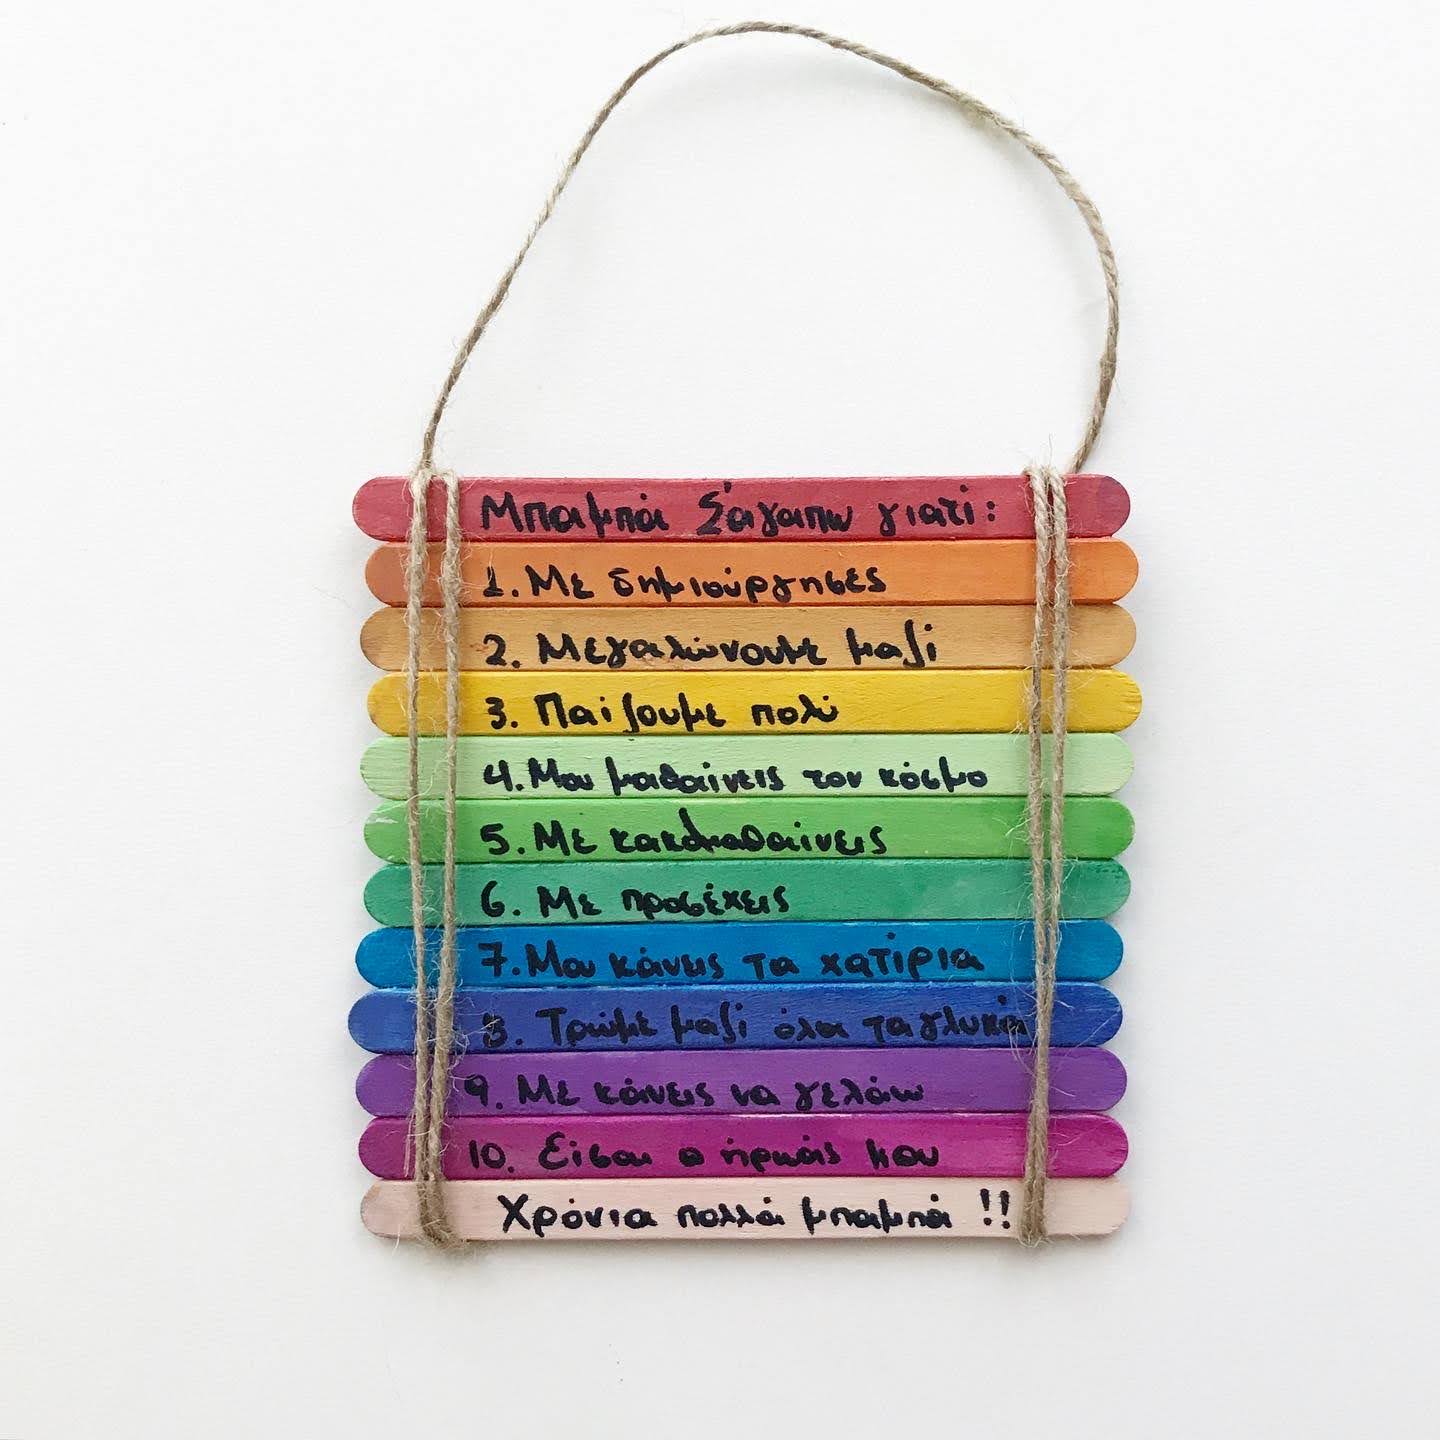 Μπαμπά Σ'αγαπω γιατί:
1. Με δημιούργησες
2. Μεγαλώνουμε μαζί
3. Παίζουμε πολύ
4. Μου μαθαίνεις τον κόσμο
5. Με κακομαθαίνεις
6. Με προσέχεις
7. Μου κάνεις τα χατίρια
8. Τρώμε μαζί όλα τα γλυκά
9. Με κάνεις να γελάω
10. Είσαι ο ήρωάς μου
Χρόνια πολλά μπαμπά !!